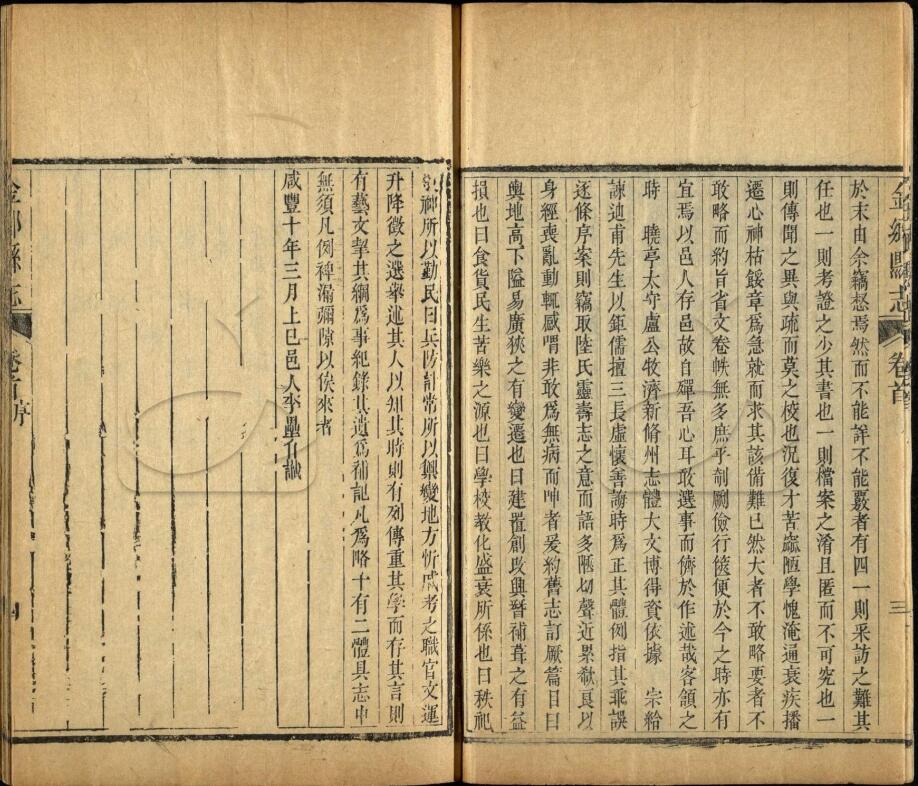 金鄉縣志 卷首 三
於末由余竊惄焉然而不能詳不能覈者有四一則采訪之難其
任也一則考證之少其書也一則檔案之淆且匿而不可究也一
則傳聞之異與疏而莫之校也況復才苦麤陋學愧淹通衰疾播
遷心神枯餒章爲急就而求其該備難已然大者不敢略要者不
敢略而約旨省文卷帙無多庶乎剞劂儉行篋便於今之時亦有
宜焉以邑人存邑故自殫吾心耳敢選事而儕於作述哉客頷之
時 曉亭太守盧公牧濟新脩州志體大文博得資依據 宗給
諫迪甫先生以鉅儒擅三長虛懷善誨時爲正其體例指其乖誤
迻條序案則竊取陸氏靈壽志之意而語多陋切聲近累欷良以
身經喪亂動輒感喟非敢爲無病而呻者爰約舊志訂厥篇目曰
輿地高下隘易廣狹之有變遷也曰建置創改興廢補葺之有益
損也曰食貨民生苦樂之源也曰學校教化盛衰所係也曰秩祀
神所以勤民曰兵防討常所以興變地方忻戚考之職官文運
升降徵之選舉述其人以知其時則有列傳重其學而存其言則
有藝文挈其綱爲事紀錄其遺爲補記凡爲略十有二體具志中
無須凡例裨漏彌隙以俟來者
咸豐十年三月上巳邑人李壘 識
金鄉縣志 卷首 序 四